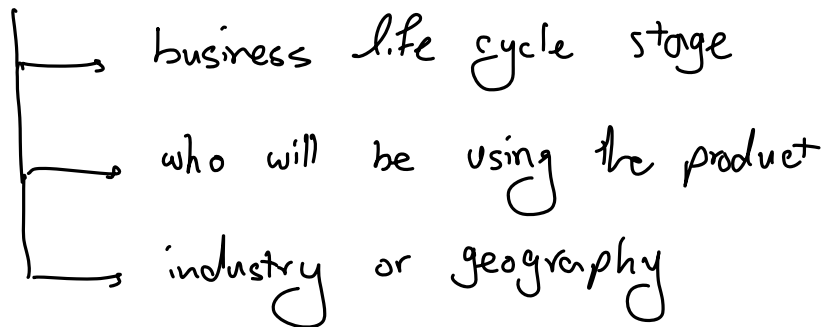 business life cycle stage
who will be using the product
industry or geography